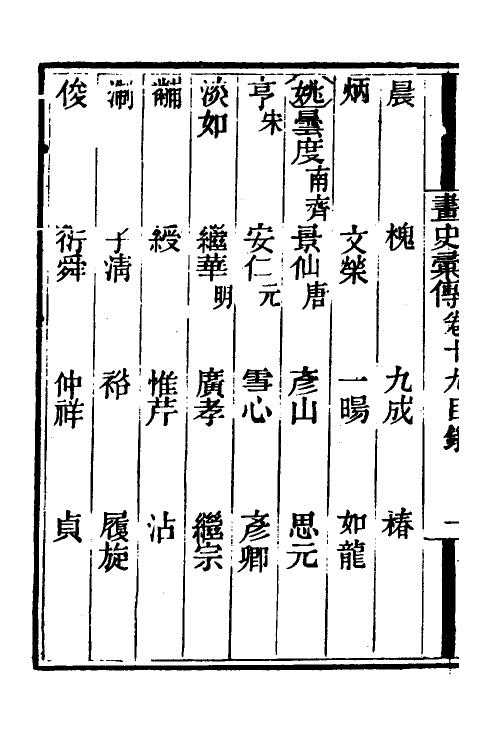 畫史彙傳卷十九目錄 一
晨 槐 九成 椿
炳 文榮 一暘 如龍
姚曇度南齊 景仙唐 彥山 思元
亨宋 安仁元 雪心 彥卿
淡如 繼華明 廣孝 繼宗
黼 綬 惟芹 沾
澍 子清 裕 履旋
俊 衍舜 仲祥 貞